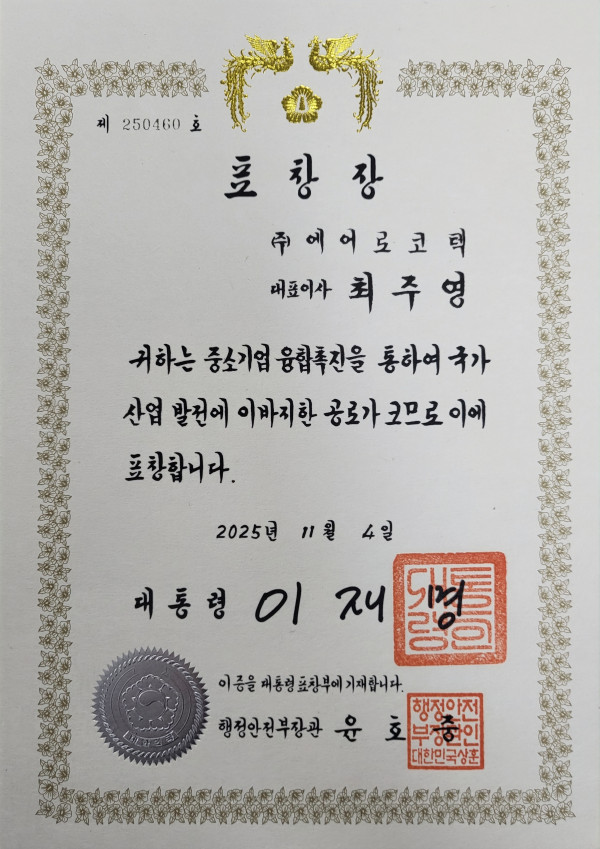 제 250460 호
표창장
(주)에어로코텍
대표이사 최주영
귀하는 중소기업 융합촉진을 통하여 국가
산업 발전에 이바지한 공로가 크므로 이에
표창합니다.
2025년 11월 4일
대통령 이재명
대통령의
이 증을 대통령표창부에 기재합니다.
행정안전부장관 윤호중
행정안전
부장관인
대한민국상훈